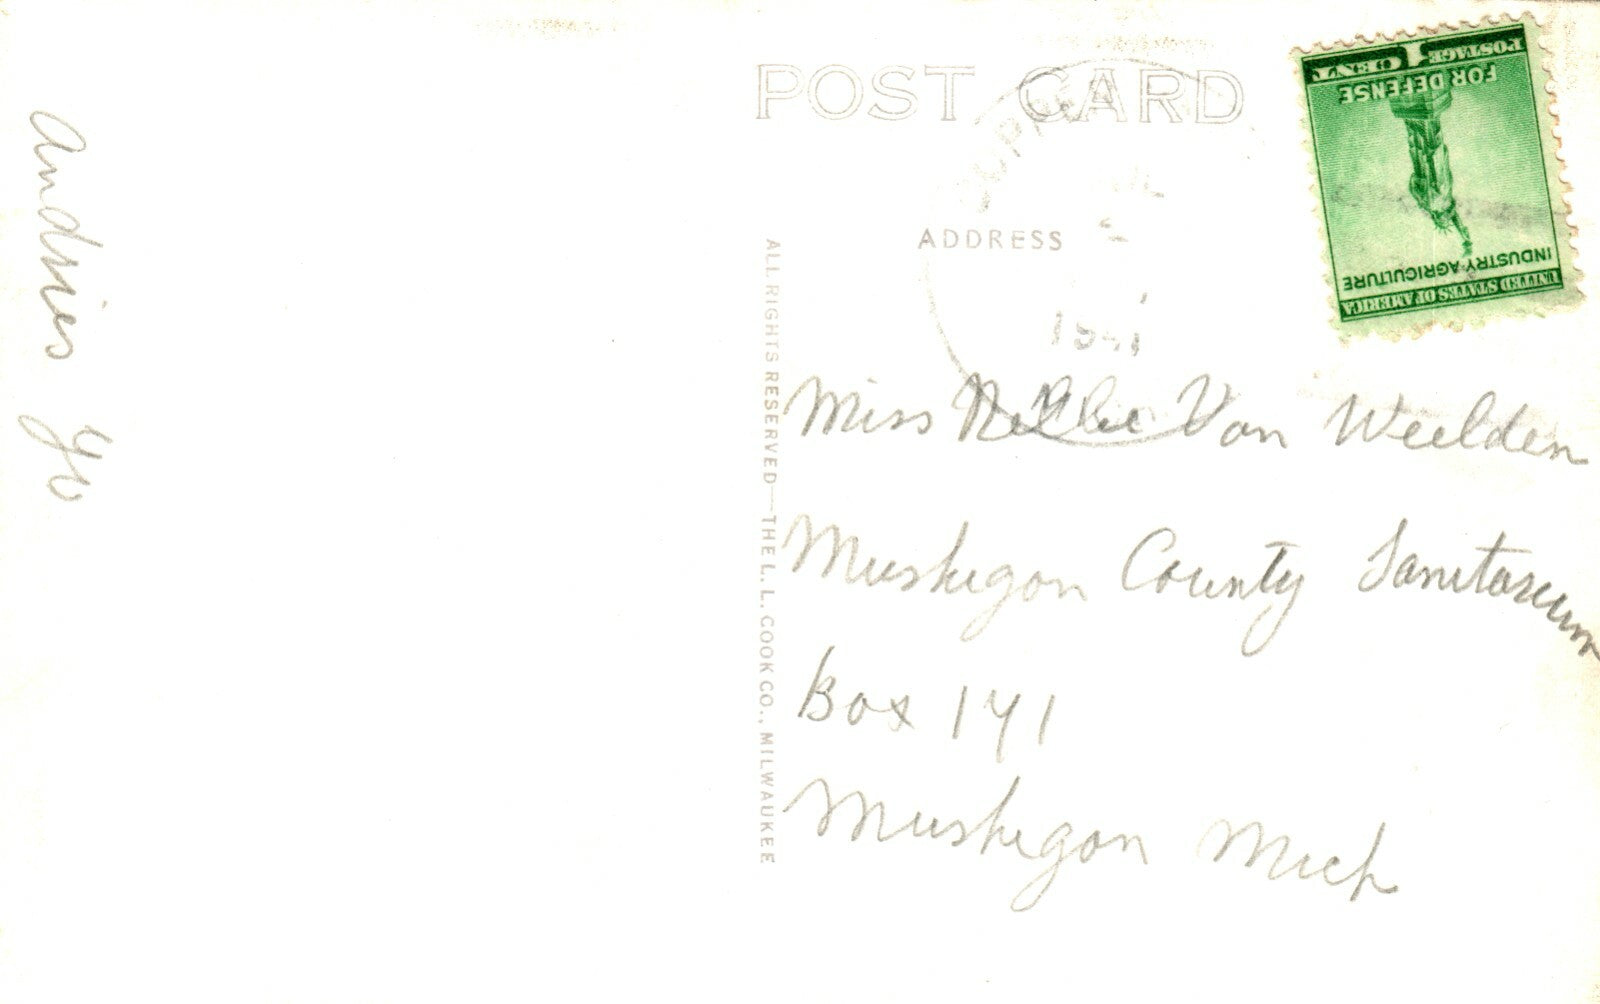 POST CARD
ADDRESS
1941
1 CENT POSTAGE
FOR DEFENSE
INDUSTRY AGRICULTURE
UNITED STATES OF AMERICA
Andries Jr
ALL RIGHTS RESERVED—THE L. L. COOK CO., MILWAUKEE
Miss Nellie Van Weelden
Muskegon County Sanitarium
Box 141
Muskegon Mich